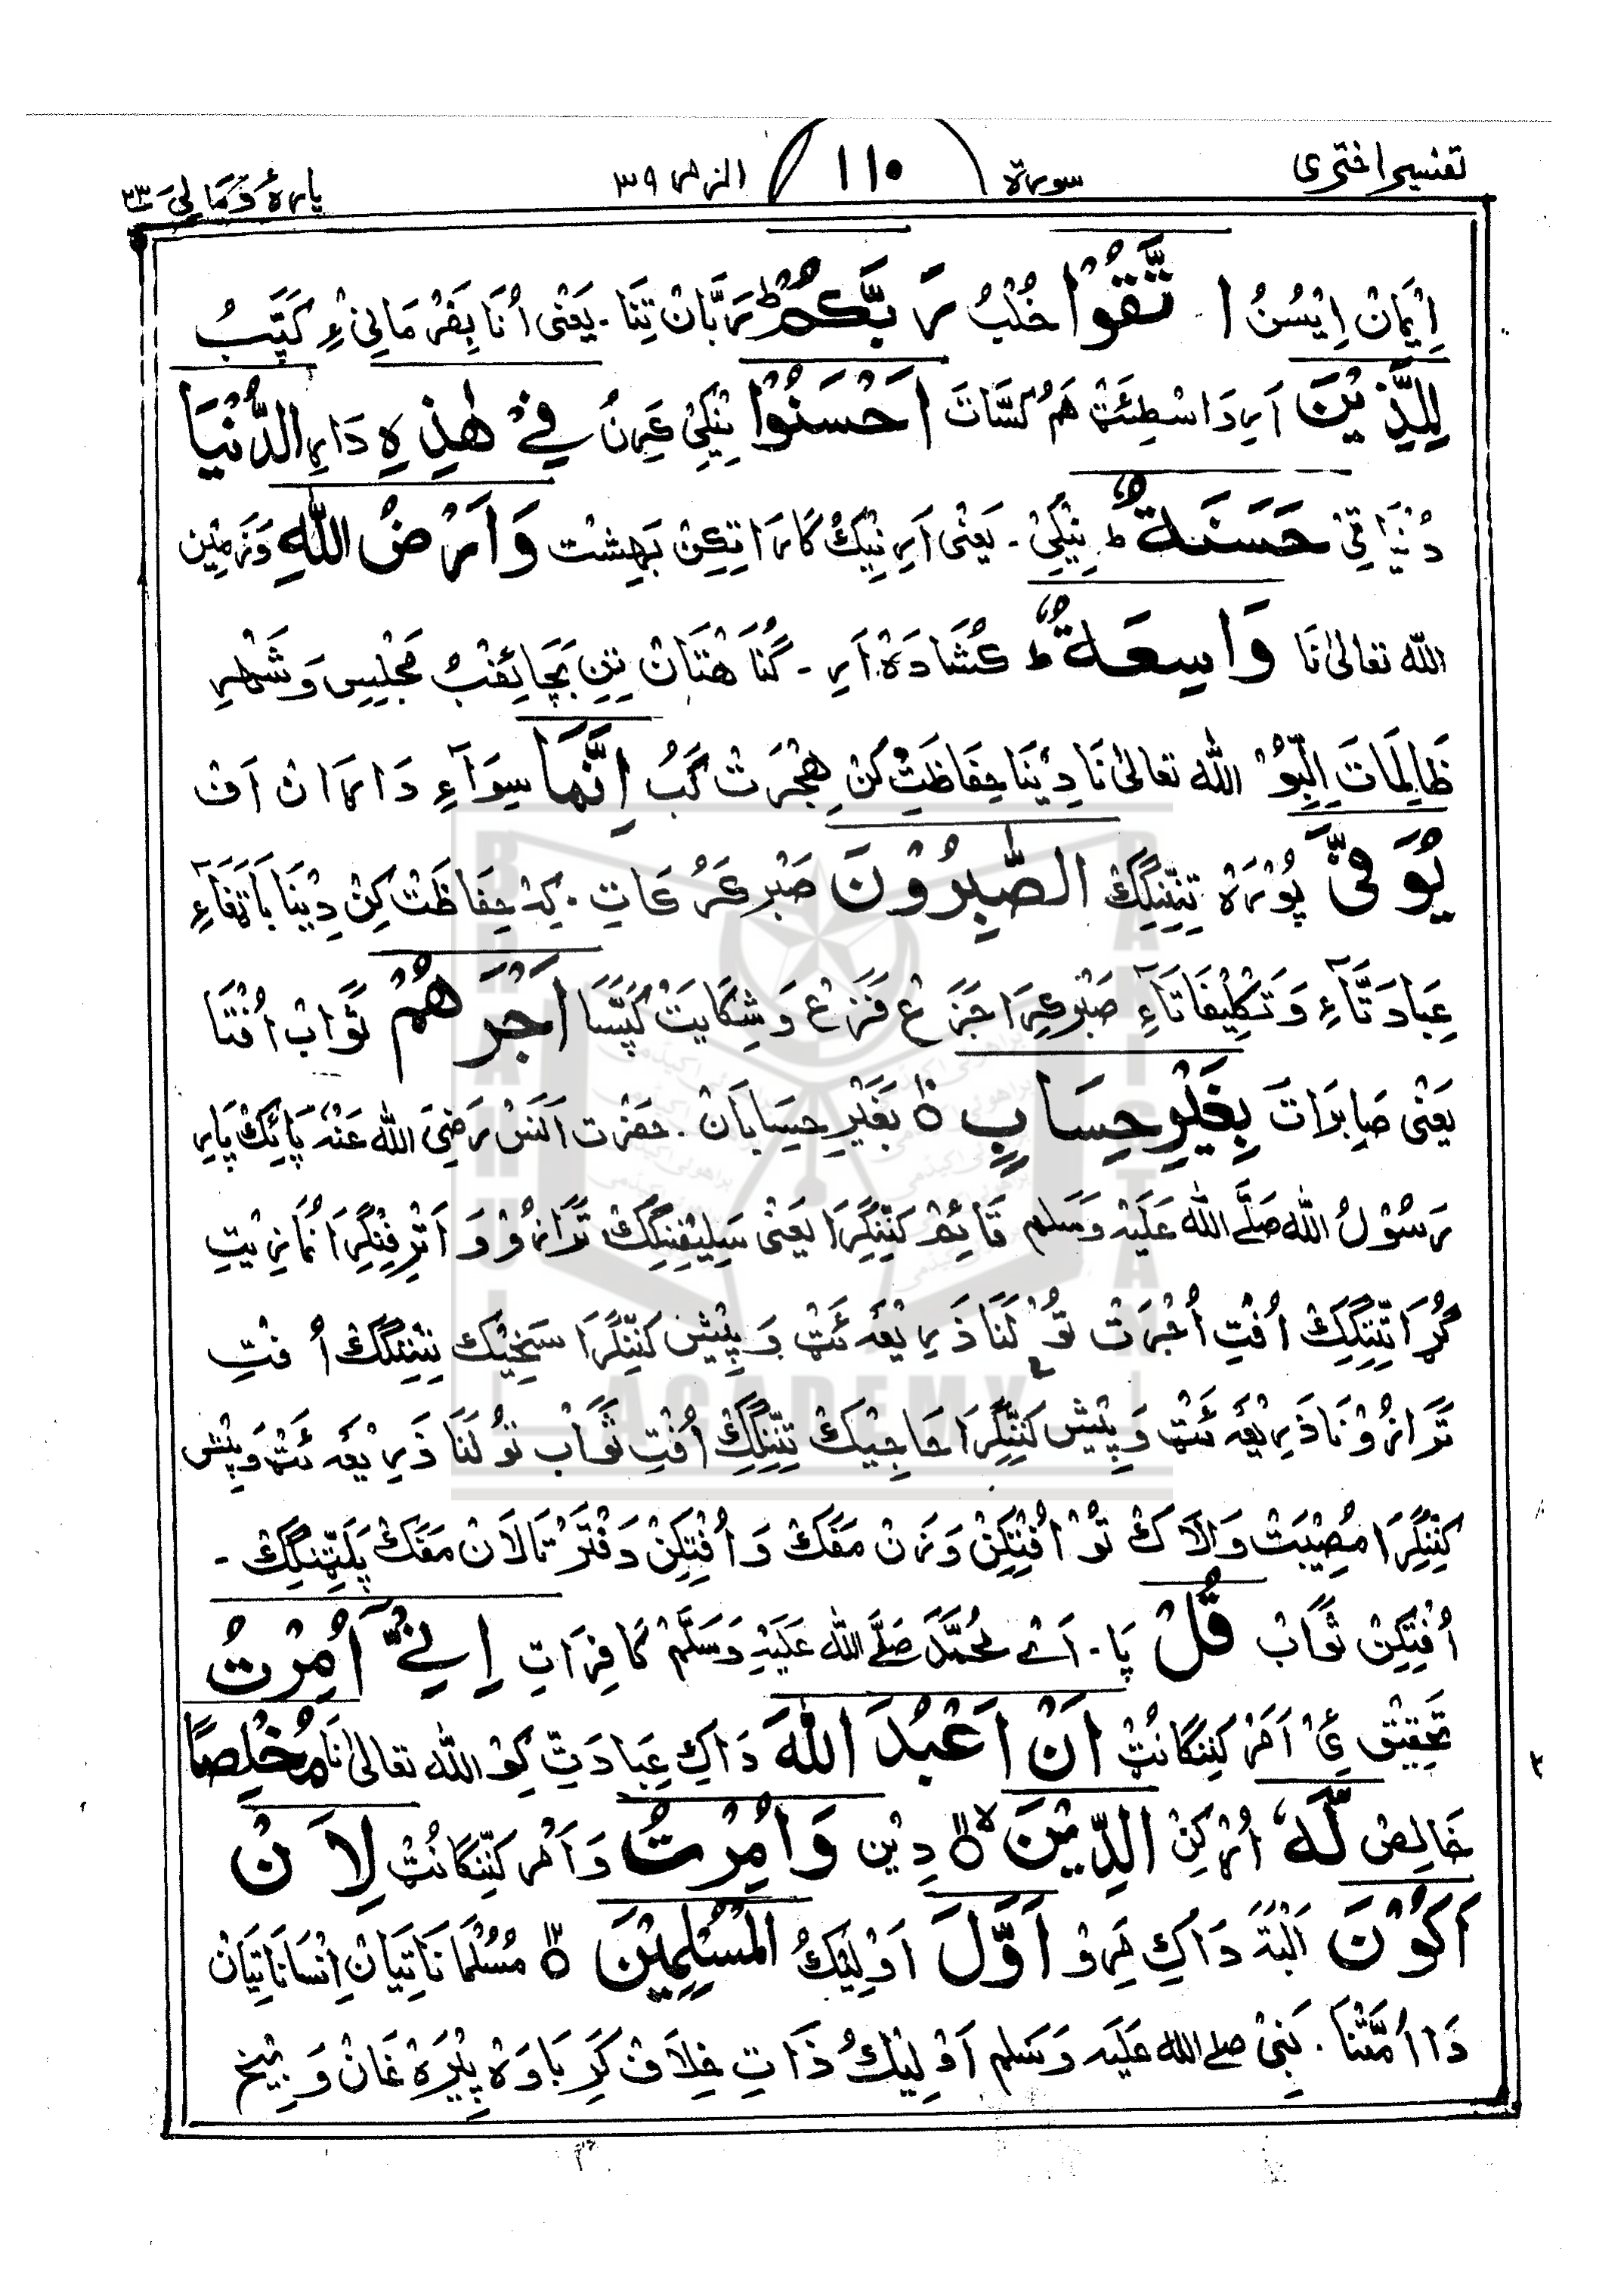 تفسیر اختری سورة ١١٠ الزمر ٣٩ پارهٔ وَمَا لِیَ ٢٣
اِیْمَانْ اِیْسُنُ اتَّقُوْا خُلْبُ رَبَّكُمْ ؕ رَبَّانْ تِنَا۔ یَعْنٰی اُنَا بِفَرْمَانِیْ ءِ كَپَّبُ
لِلَّذِیْنَ اَرِ وَاسْطِئَتْ هَمُ كَسَّاتَ اَحْسَنُوْا نِیْكِیْ كَرِنُ فِیْ هٰذِهِ دَارِ الدُّنْیَا
دُنْیَا ٹِیْ حَسَنَةٌ ؕ نِیْكِیْ۔ یَعْنٰی اَرِ نِیْكْ كَارَاتِكِنْ بَهِشْت وَاَرْضُ اللّٰهِ وَزَمِیْن
اللّٰه تعالیٰ نَا وَاسِعَةٌ ؕ كُشَادَهْ اَرِ۔ گُنَا هَتَانْ تِنِ بَچَائِفْبُ مَجْلِسِ وَشَهْرِ
ظَالِمَاتَ اِلِّبُوْ اللّٰه تعالیٰ نَا دِیْنَا حِفَاظَتْ كِنْ هِجْرَتْ كَبُ اِنَّمَا سِوَآءِ دَارَانْ اَفْ
یُوَفَّی پُوْرَهْ تِنِنْگِكْ الصّٰبِرُوْنَ صَبْر كَرُكَاتِ۔ كِهْ حِفَاظَتْ كِنْ دِیْنَا بَاتْفَآءِ
عِبَادَتَّآءِ وَتَكْلِیْفَاتَآءِ صَبْر كِرَا جَزَعْ فَزَعْ وَشِكَایَتْ كَپَّسَا اَجْرَهُمْ ثَوَابْ اُفْتَا
یَعْنٰی صَابِرَاتَ بِغَیْرِ حِسَابٍ ۝ بَغَیْرِ حِسَابَانْ۔ حضرت اَنَسْ رَضِیَ اللّٰه عَنْهُ پَائِكْ پَارِ
رَسُوْلُ اللّٰه صَلَّی اللّٰه عَلَیْهِ وَسَلم قَائِمْ كَنِنْگِرَا یَعْنٰی سَلِیْفِنْگِكْ تَرَازُوْ وَ اَتْرِفِنْگِرَا نُمَازِیْتِ
گُڑَا تِنِنْگِكْ اُفْتِ اُجْرَتْ تُوْلَنَا ذَرِیْعَه ئَتْ وَپِیْش كَنِنْگِرَا سَخِیْك تِنِنْگِكْ اُفْتِ
تَرَازُوْنَا ذَرِیْعَه ئَتْ وَپِیْش كَنِنْگِرَا حَاجِیْكْ تِنِنْگِكْ اُفْتِ ثَوَابْ تُوْلَنَا ذَرِیْعَه ئَتْ وَپِیْش
كَنِنْگِرَا مُصِیْبَتْ وَالَاكْ تَوْ اُفْتِكِنْ وَزَنْ مَفَكْ وَ اُفْتِكِنْ دَفْتَرْ تَالَانْ مَفَكْ پَلِّتِنْگِكْ۔
اُفْتِكِنْ ثَوَابْ قُلْ پَا۔ اَےْ مُحَمَّدْ صَلَّی اللّٰه عَلَیْهِ وَسَلَّمْ كَافِرَاتِ اِنِّیْۤ اُمِرْتُ
تَحْقِیْق ئِیْ اَمْر كِنِنْگَانُٹْ اَنْ اَعْبُدَ اللّٰهَ دَاكِ عِبَادَتِ كِوْ اللّٰه تعالیٰ نَا مُخْلِصًا
خَالِصْ لَّهُ اُرْكِنْ الدِّیْنَ ۝ۙ دِیْن وَاُمِرْتُ وَ اَمْر كَنِنْگَانُٹْ لِاَنْ
اَكُوْنَ اَلْبَتَّه دَاكِ مَرِوْ اَوَّلَ اَوْلِیْكُ الْمُسْلِمِیْنَ ۝ مُسُلْمَانَاتِیَانْ اِنْسَانَاتِیَانْ
دَا اُمَّتْنَا۔ نَبِیْ صلے اللّٰه عَلَیه وَسَلم اَوْلِیْكُ ذَاتِ خِلَافْ كَرِ بَاوَهْ پِیْرَهْ غَانْ وَ بِیْخ
BRAHUI
ACADEMY
PAKISTAN